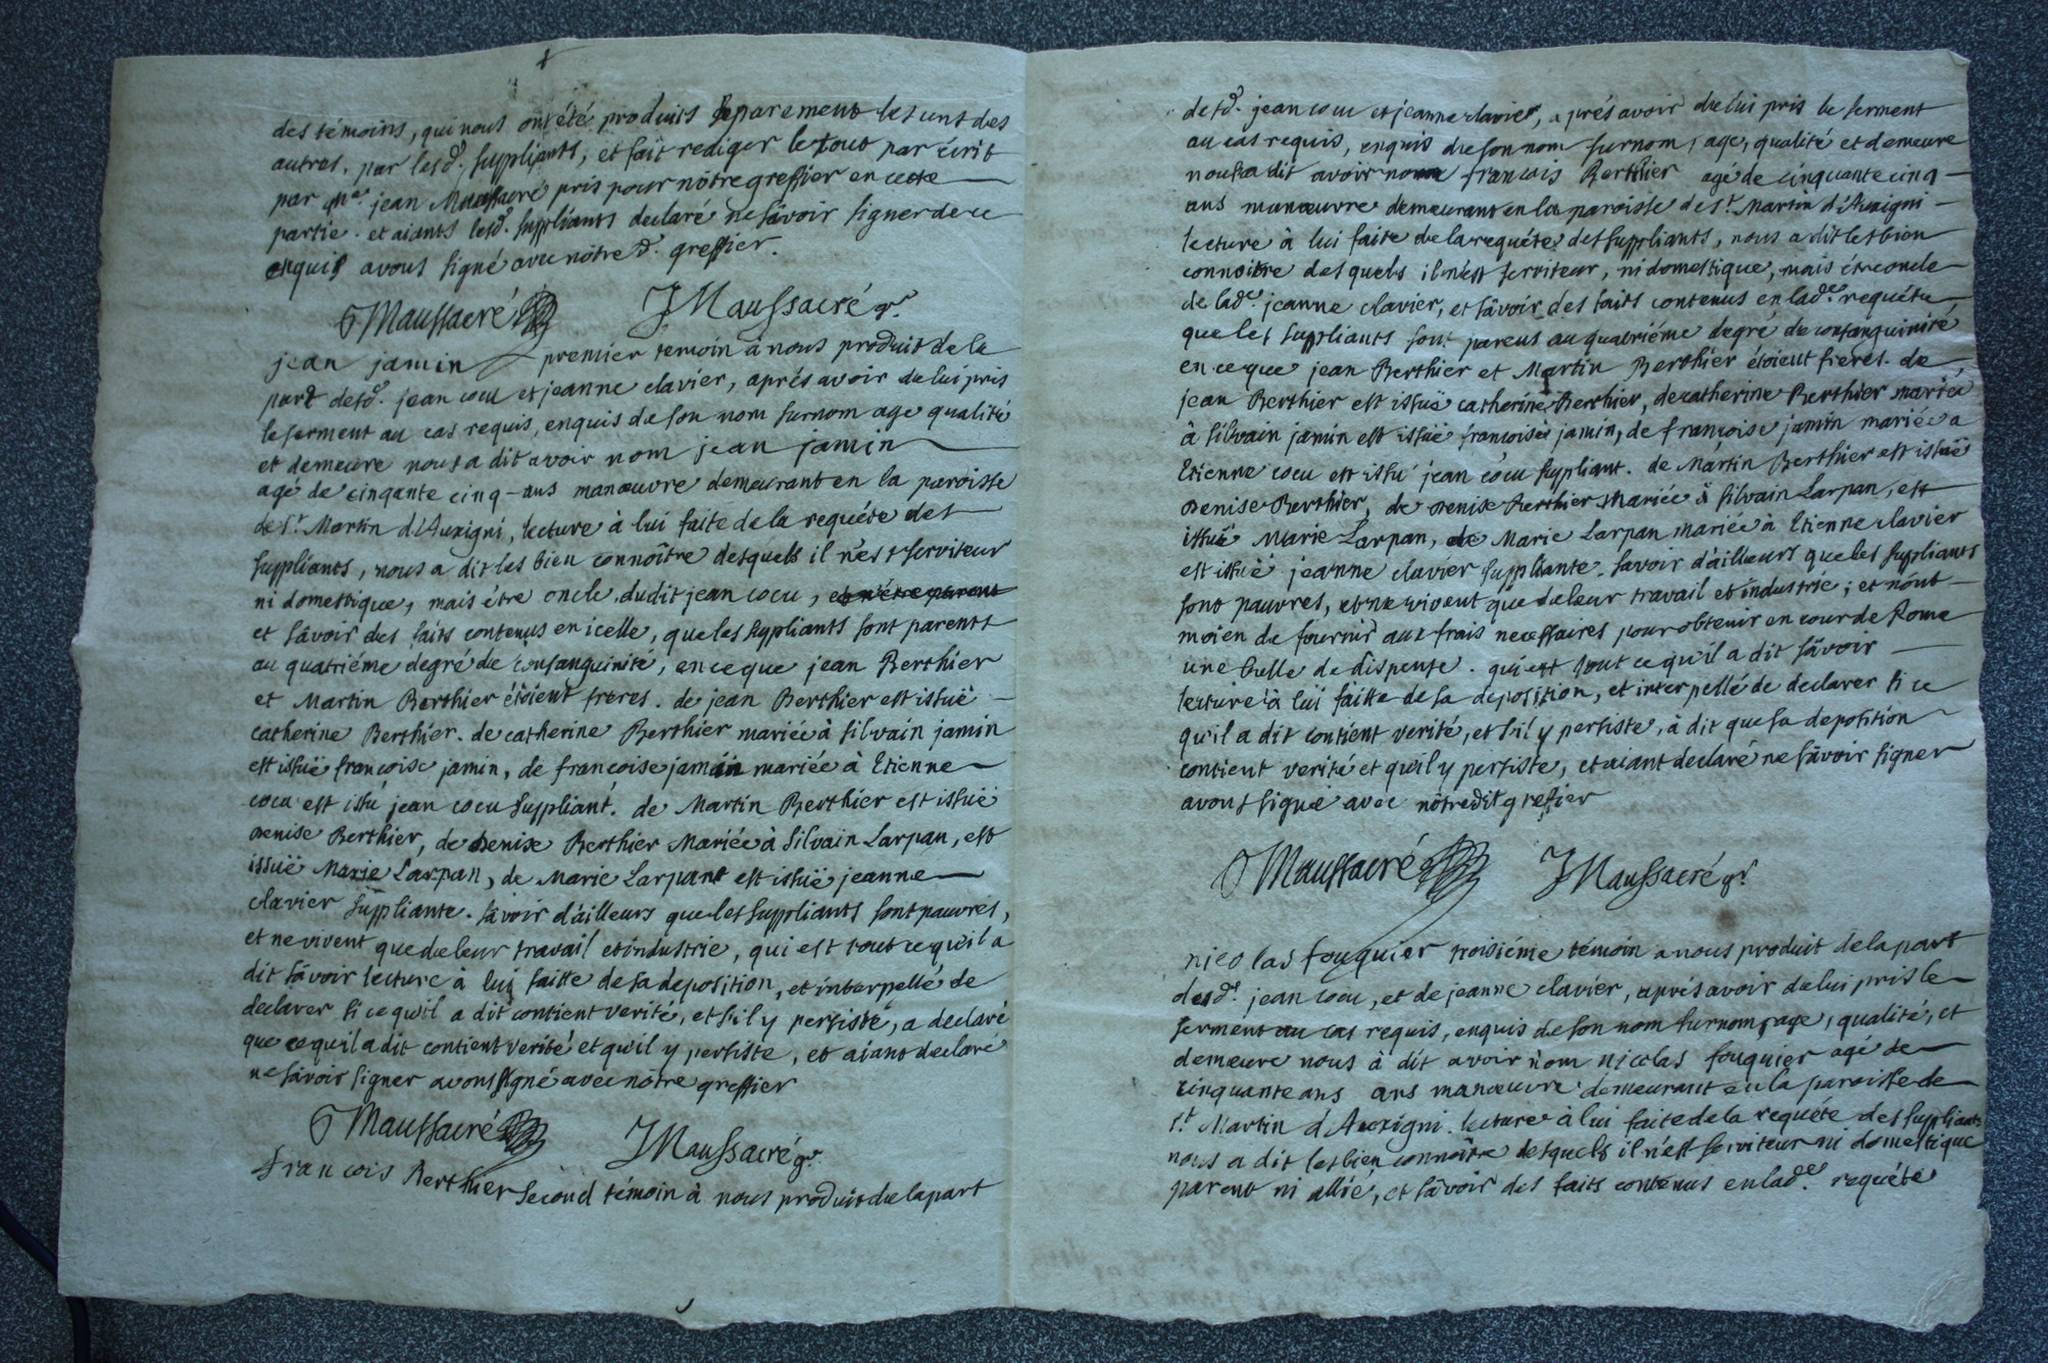 des témoins, qui nous ont été produits separement les uns des
autres, par lesd. suppliants, et fait rediger le tout par écrit
par me. jean Maussacré pris pour nôtre greffier en cette
partie. et aiants lesd. suppliants declaré ne sâvoir signer de ce
enquis avons signé avec nôtre d. greffier.
Maussacré JMaussacré gr.
jean jamin premier temoin à nous produit de la
part desd. jean cocu et jeanne clavier, aprés avoir de lui pris
le serment au cas requis, enquis de son nom surnom age qualité
et demeure nous a dit avoir nom jean jamin
agé de cinqante cinq ans manœuvre demeurant en la paroisse
de st. Martin d'Auxigni, lecture à lui faite de la requéte des
suppliants, nous a dit les bien connoître desquels il n'est serviteur
ni domestique, mais étre oncle dudit jean cocu, et n'étre parent
et sâvoir des faits contenus en icelle, que les suppliants sont parents
au quatriéme degré de consanguinité, en ce que jean Berthier
et Martin Berthier étoient freres. de jean Berthier est issuë
catherine Berthier. de catherine Berthier mariée à silvain jamin
est issuë francoise jamin, de francoise jamin mariée à Etienne
cocu est issu jean cocu suppliant. de Martin Berthier est issuë
Denise Berthier, de Denise Berthier Mariée à silvain Larpan, est
issuë Marie Larpan, de Marie Larpant est issuë jeanne
clavier suppliante. sâvoir d'ailleurs que les suppliants sont pauvres,
et ne vivent que de leur travail et industrie, qui est tout ce qu'il a
dit sâvoir lecture à lui faitte de sa deposition, et interpellé de
declarer si ce qu'il a dit contient verité, et s'il y persiste, a declaré
que ce qu'il a dit contient verité et qu'il y persiste, et aiant declaré
ne sâvoir signer avons signé avec nôtre greffier
Maussacré JMaussacré gr.
francois Berthier second témoin à nous produit de la part
desd. jean cocu et jeanne clavier, aprés avoir de lui pris le serment
au cas requis, enquis de son nom surnom, age, qualité et demeure
nous a dit avoir nom francois Berthier agé de cinquante cinq
ans manœuvre demeurant en la paroisse de st. Martin d'Auxigni
lecture à lui faite de la requéte des suppliants, nous a dit les bien
connoitre desquels il n'est serviteur, ni domestique, mais étre oncle
de lade. jeanne clavier, et sâvoir des faits contenus en lade. requéte,
que les suppliants sont parens au quatriéme degré de consanguinité
en ce que jean Berthier et Martin Berthier étoient freres. de
jean Berthier est issuë catherine Berthier, de catherine Berthier mariée
à silvain jamin est issuë francoise jamin, de francoise jamin mariée a
Etienne cocu est issu jean cocu suppliant. de Martin Berthier est issuë
Denise Berthier, de Denise Berthier Mariée à silvain Larpan, est
issuë Marie Larpan, de Marie Larpan mariée à Etienne clavier
est issuë jeanne clavier suppliante. savoir d'ailleurs que les suppliants
sont pauvres, et ne vivent que de leur travail et industrie; et n'ont
moien de fournir aux frais necessaires pour obtenir en cour de Rome
une bulle de dispense. qui est tout ce qu'il a dit sâvoir
lecture à lui faitte de sa deposition, et interpellé de declarer si ce
qu'il a dit contient verité, et s'il y persiste, à dit que sa deposition
contient verité et qu'il y persiste, et aiant declaré ne sâvoir signer
avons signé avec nôtredit greffier
Maussacré JMaussacré gr.
nicolas fouquier troisiéme témoin a nous produit de la part
desd. jean cocu, et de jeanne clavier, aprés avoir de lui pris le
serment au cas requis, enquis de son nom surnom, age, qualité, et
demeure nous à dit avoir nom nicolas fouquier agé de
cinquante ans ans manœuvre demeurant en la paroisse de
st. Martin d'Auxigni. lecture à lui faite de la requéte des suppliants
nous a dit les bien connoître desquels il n'est serviteur ni domestique
parent ni allié, et sâvoir des faits contenus en lade. requéte